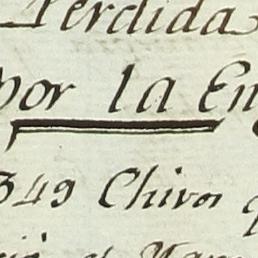 Perdida
por la En
349 Chivos q